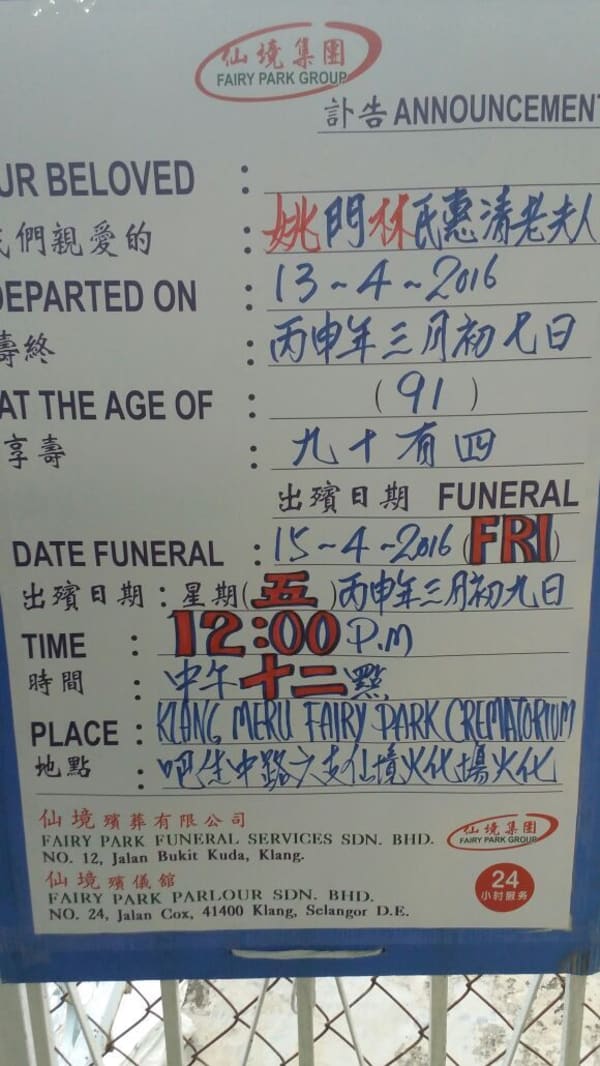 仙境集團
FAIRY PARK GROUP
訃告 ANNOUNCEMENT
UR BELOVED :
我們親愛的 : 姚門林氏惠清老夫人
DEPARTED ON : 13~4~2016
壽終 : 丙申年三月初七日
AT THE AGE OF : (91)
享壽 : 九十有四
出殯日期 FUNERAL
DATE FUNERAL : 15~4~2016 (FRI)
出殯日期 : 星期(五)丙申年三月初九日
TIME : 12:00 P.M
時間 : 中午十二點
PLACE : KLANG MERU FAIRY PARK CREMATORIUM
地點 : 吧生中路六支仙境火化場火化
仙境殯葬有限公司
FAIRY PARK FUNERAL SERVICES SDN. BHD.
NO. 12, Jalan Bukit Kuda, Klang.
仙境集團
FAIRY PARK GROUP
仙境殯儀舘
FAIRY PARK PARLOUR SDN. BHD.
NO. 24, Jalan Cox, 41400 Klang, Selangor D.E.
24
小时服务